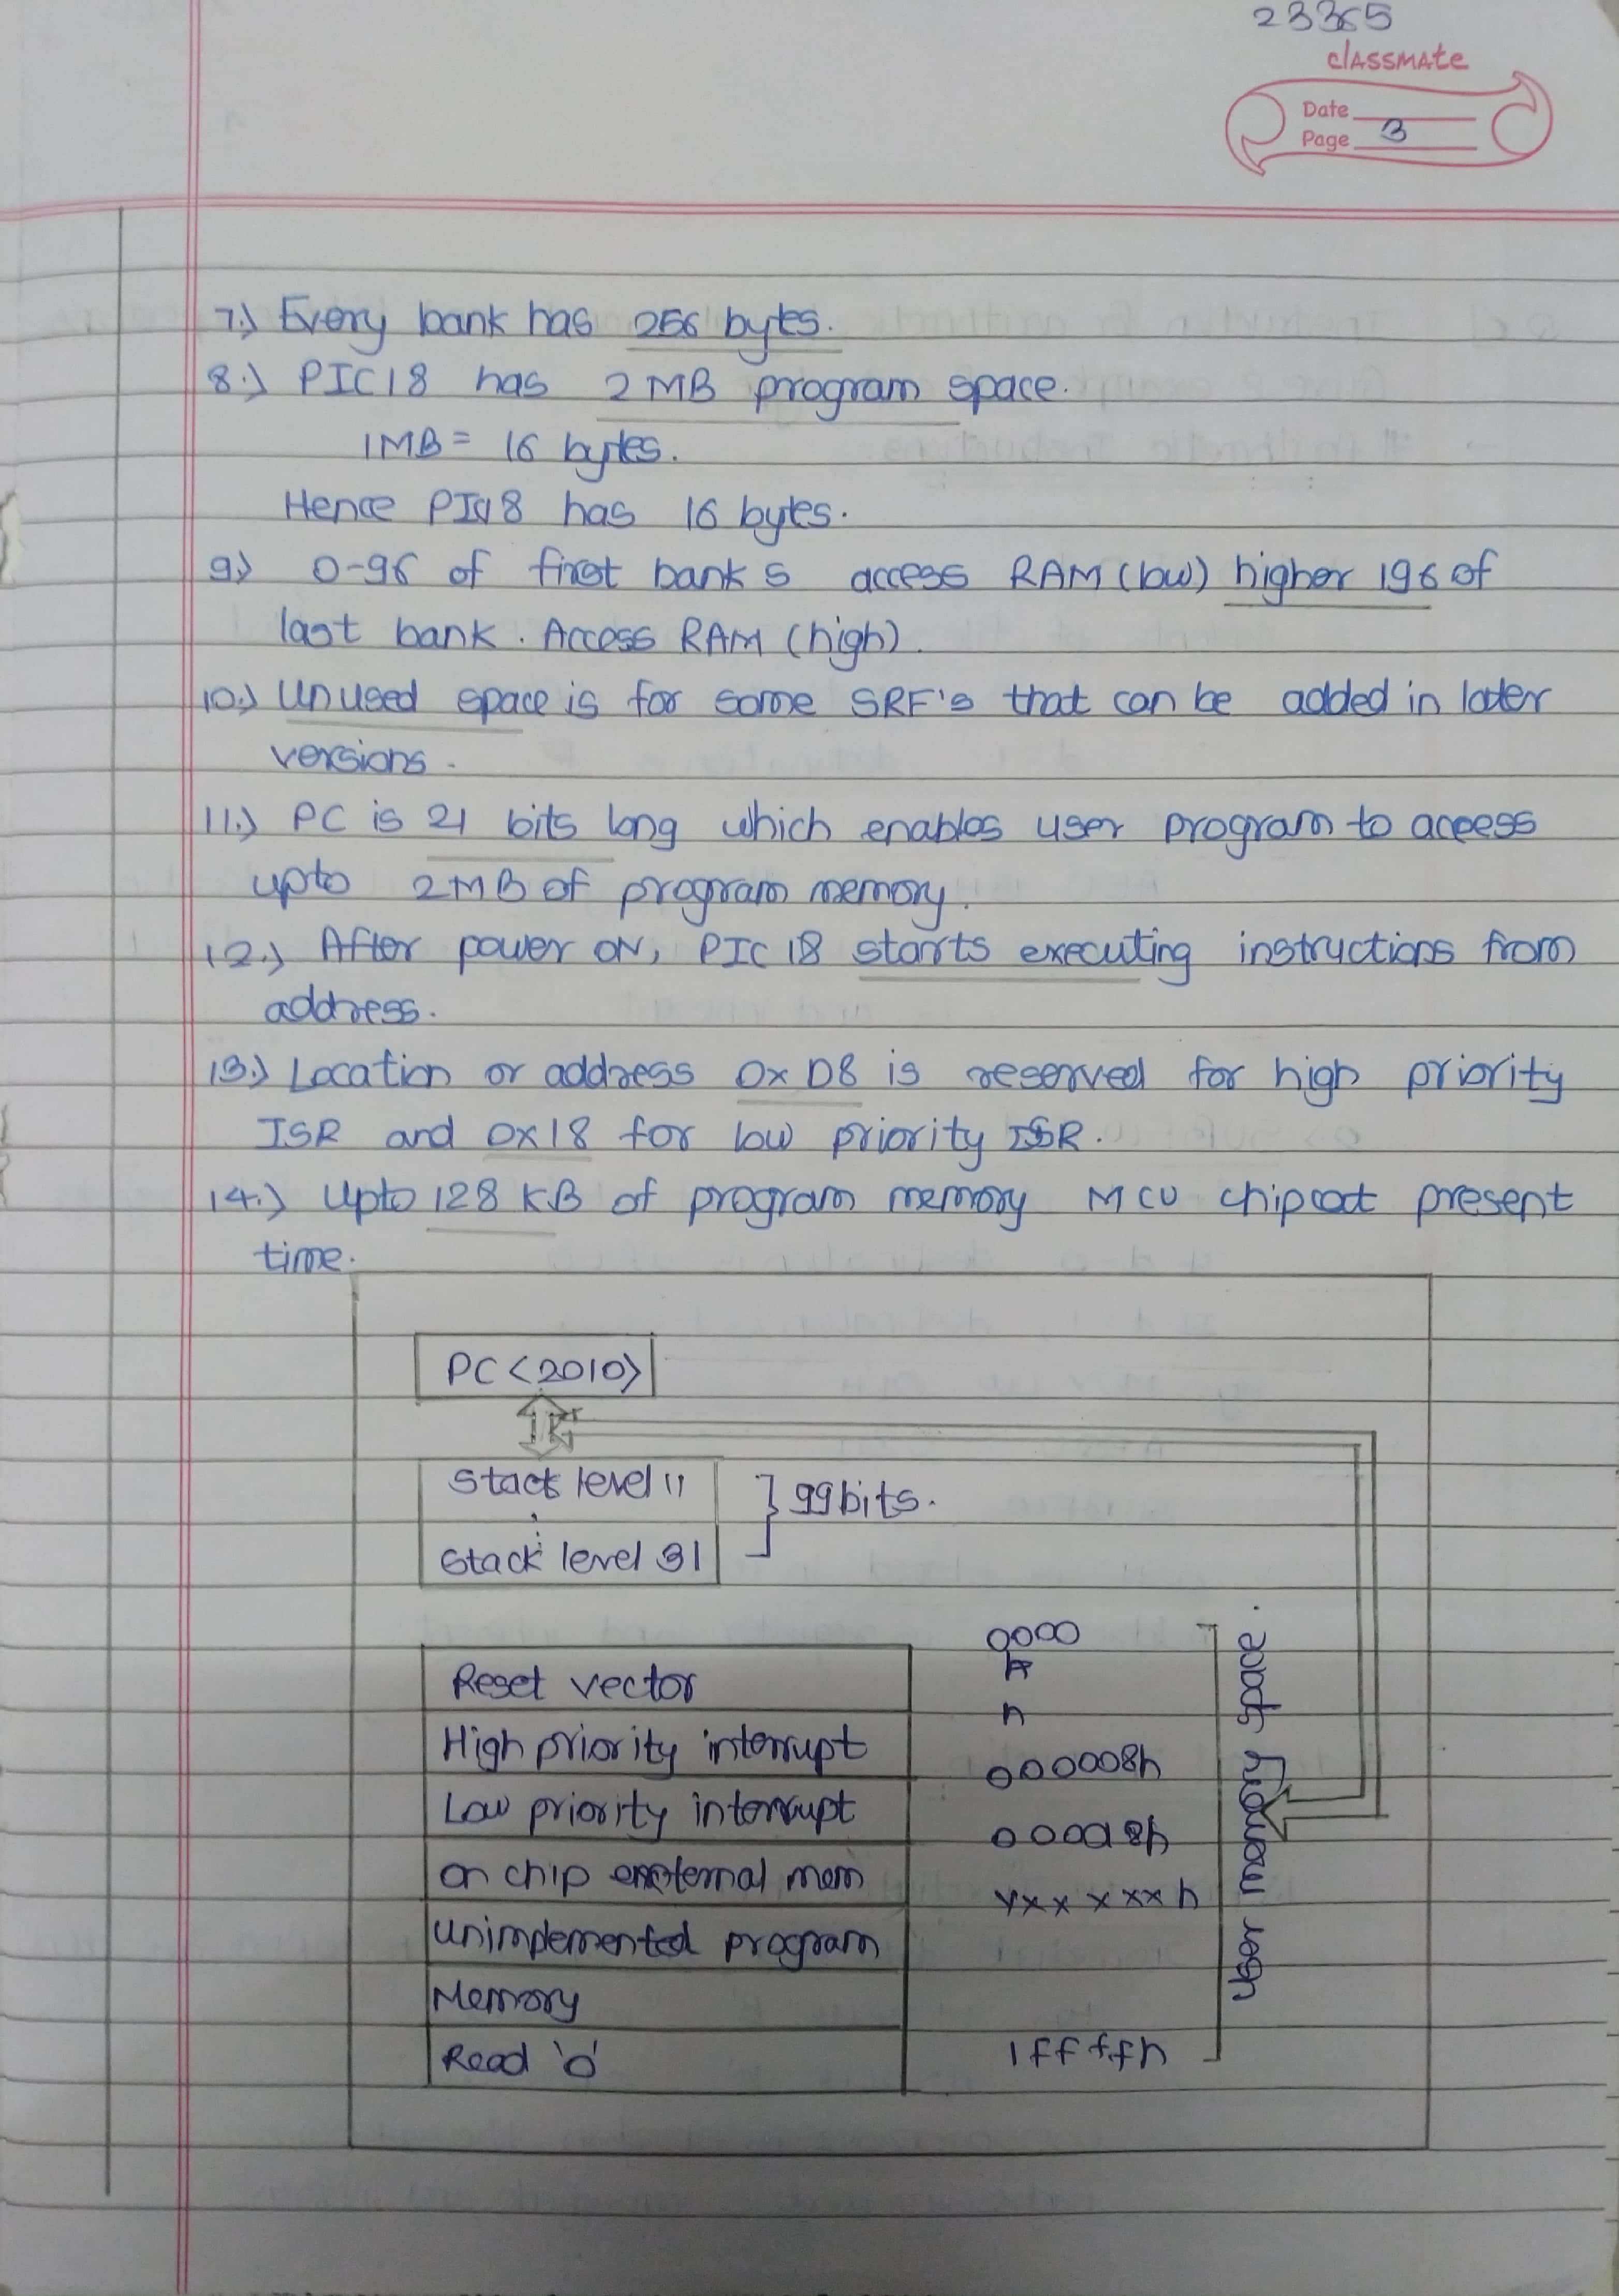 23365
classmate
Date
Page 3
7.) Every bank has 256 bytes.
8.) PIC18 has 2MB program space.
1MB = 16 bytes.
Hence PIC18 has 16 bytes.
9) 0-96 of first bank s access RAM (low) higher 196 of
last bank. Access RAM (high).
10.) Unused space is for some SRF's that can be added in later
versions.
11.) PC is 21 bits long which enables user program to access
upto 2MB of program memory.
12.) After power ON, PIC 18 starts executing instructions from
address.
13.) Location or address 0xD8 is reserved for high priority
ISR and 0x18 for low priority ISR.
14.) Upto 128 KB of program memory MCU chip at present
time.
PC <2010>
Stack level 11
⋮
Stack level 31
99 bits.
0000
Reset vector
h
High priority interrupt
000008h
Low priority interrupt
on chip external mem
unimplemented program
Memory
Read '0'
1fffffh
User memory space.